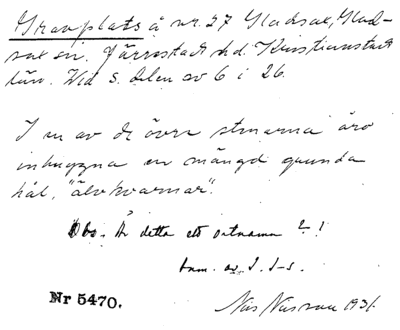 Gravplats å nr. 27 Gladsax, Glad-
sax sn. Järrestads hd. Kristianstads
län. Vid S. delen av 6 i 26.
I en av de övre stenarna äro
inhuggna en mängd runda
hål, "älvkvarnar".
Obs. Är detta ett ortnamn ? !
Anm. av I. I-s.
Nr 5470.
Nils 1931.